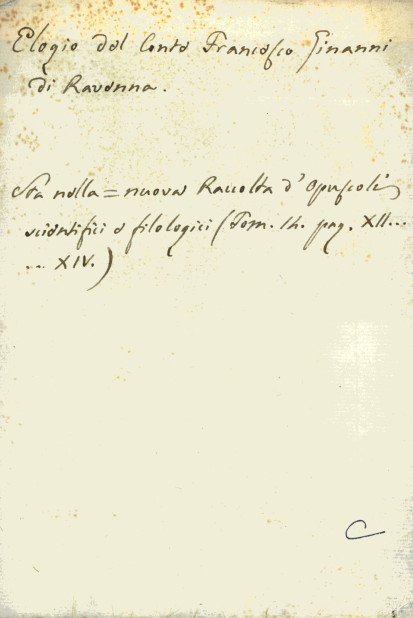 Elogio del Conte Francesco Ginanni
di Ravenna.
Sta nella = nuova Raccolta d'Opuscoli
scientifici e filologici (Tom. 14. pag. XII...
... XIV.)
C